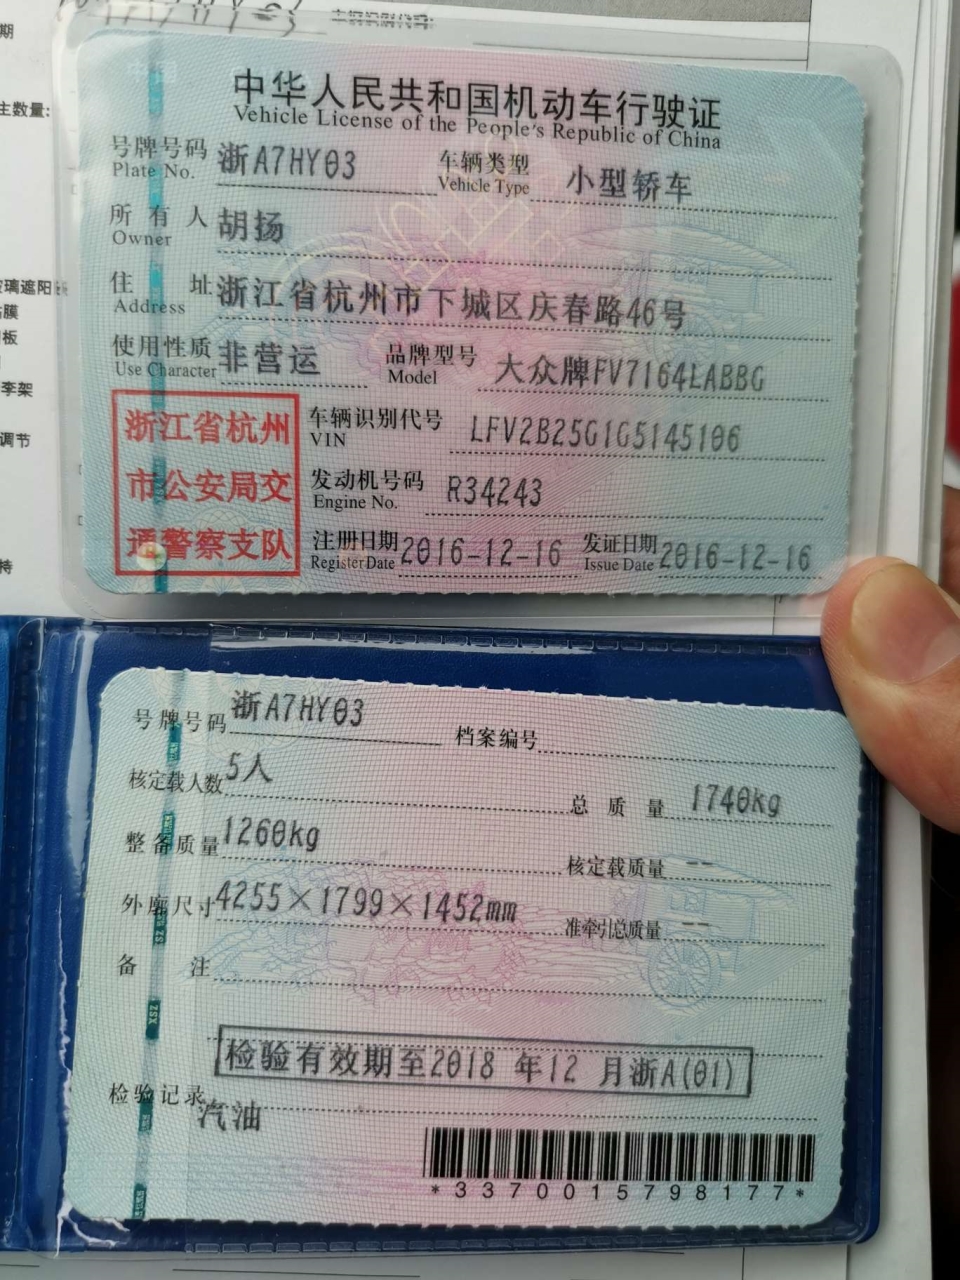 期
主数量:
玻璃遮阳
膜
板
李架
调节
特
中华人民共和国机动车行驶证
Vehicle License of the People's Republic of China
号牌号码 浙A7HY03 车辆类型 小型轿车
Plate No. Vehicle Type
所有人 胡扬
Owner
住址 浙江省杭州市下城区庆春路46号
Address
使用性质 非营运 品牌型号 大众牌FV7164LABBG
Use Character Model
浙江省杭州
市公安局交
通警察支队
车辆识别代号 LFV2B25G1G5145106
VIN
发动机号码 R34243
Engine No.
注册日期 2016-12-16 发证日期 2016-12-16
Register Date Issue Date
号牌号码 浙A7HY03 档案编号
核定载人数 5人 总质量 1740kg
整备质量 1260kg 核定载质量 --
外廓尺寸 4255×1799×1452mm 准牵引总质量 --
备注
检验有效期至2018 年12 月浙A(01)
检验记录
汽油
*3370015798177*